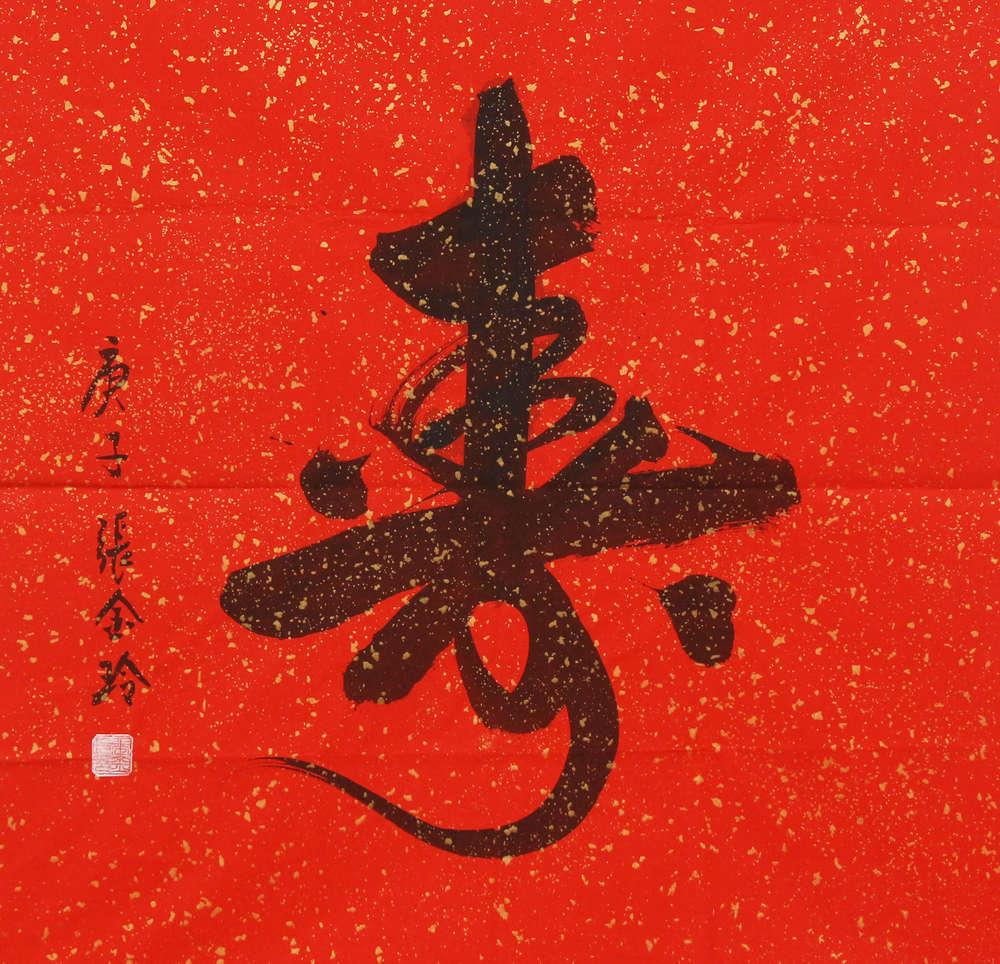 壽
庚子張金玲